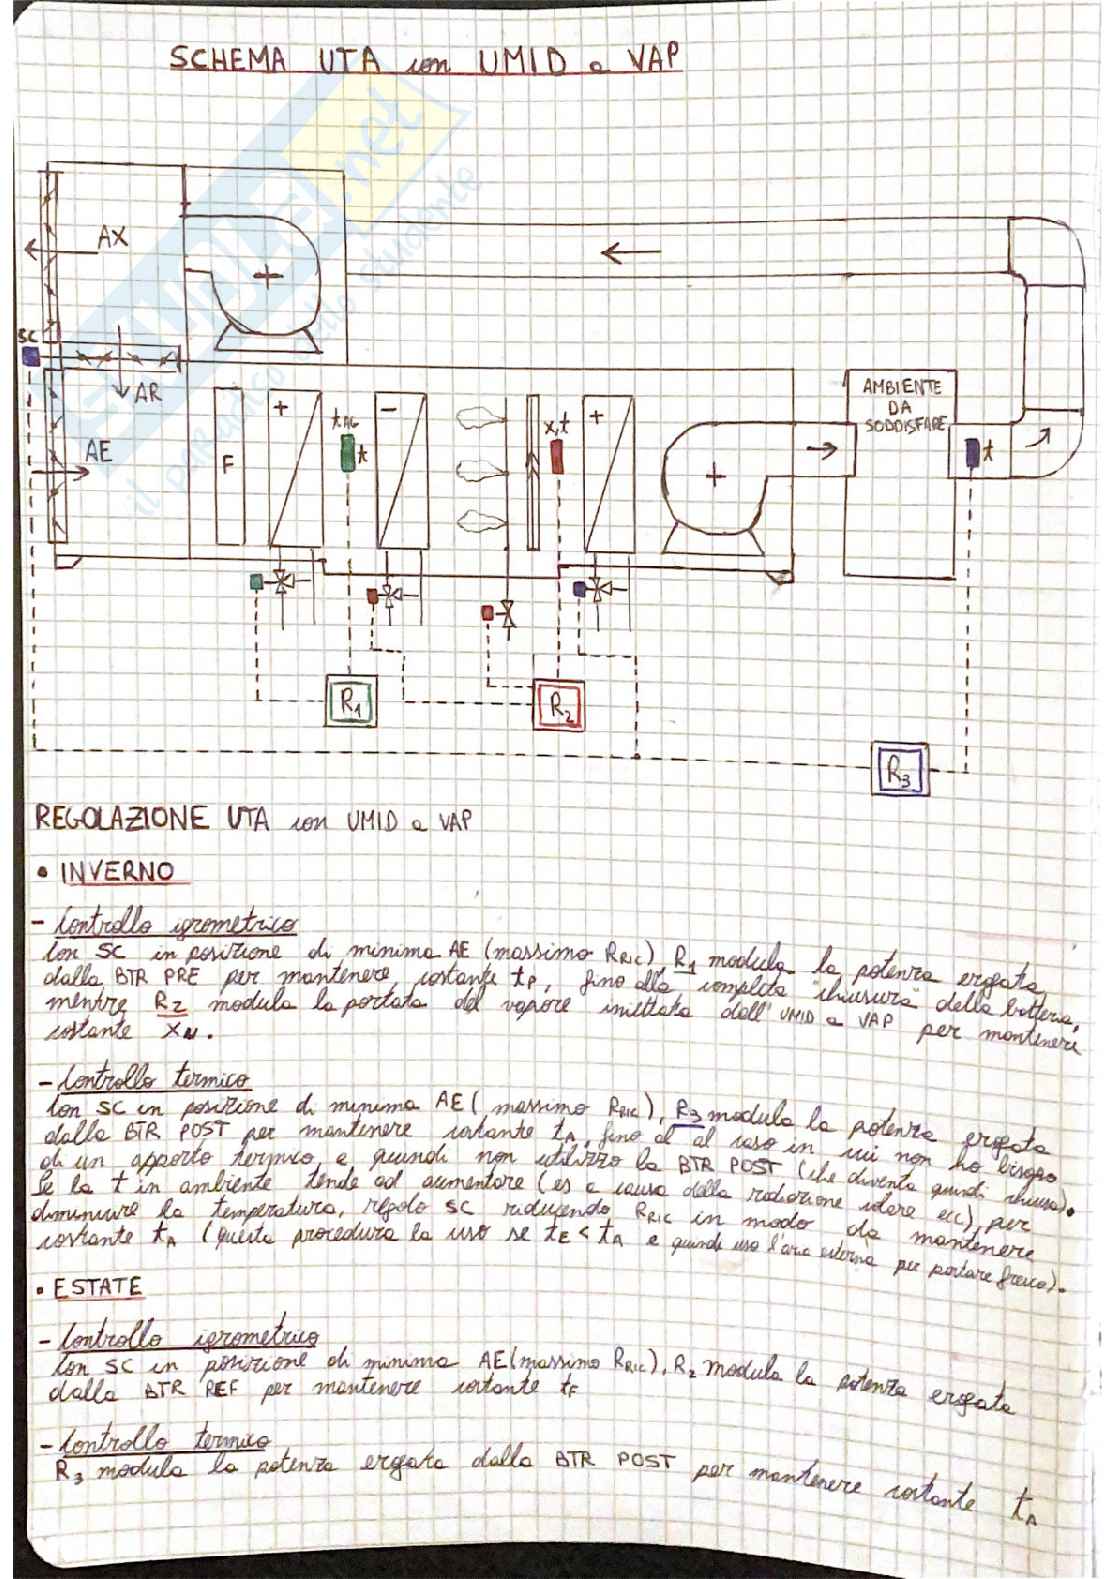 SCHEMA UTA con UMID a VAP
AX
SC
AR
AE
F
+
t AG
t
-
x,t
+
+
+
AMBIENTE
DA
SODDISFARE
t
R1
R2
R3
REGOLAZIONE UTA con UMID a VAP
• INVERNO
- Controllo igrometrico
Con SC in posizione di minima AE (massimo RRIC) R1 modula la potenza erogata
dalla BTR PRE per mantenere costante tP, fino alla completa "chiusura" della batteria,
mentre R2 modula la portata del vapore iniettata dall'UMID a VAP per mantenere
costante XN.
- Controllo termico
Con SC in posizione di minima AE (massimo RRIC), R3 modula la potenza erogata
dalla BTR POST per mantenere costante tA, fino al al caso in cui non ho bisogno
di un apporto termico e quindi non utilizzo la BTR POST (che diventa quindi chiusa).
Se la t in ambiente tende ad aumentare (es a causa della radiazione solare ecc), per
diminuire la temperatura, regolo SC riducendo RRIC in modo da mantenere
costante tA (questa procedura la uso se tE < tA e quindi uso l'aria esterna per portare fresco).
• ESTATE
- Controllo igrometrico
Con SC in posizione di minima AE (massimo RRIC), R2 modula la potenza erogata
dalla BTR REF per mantenere costante tF
- Controllo termico
R3 modula la potenza erogata dalla BTR POST per mantenere costante tA
il paradiso dello studente